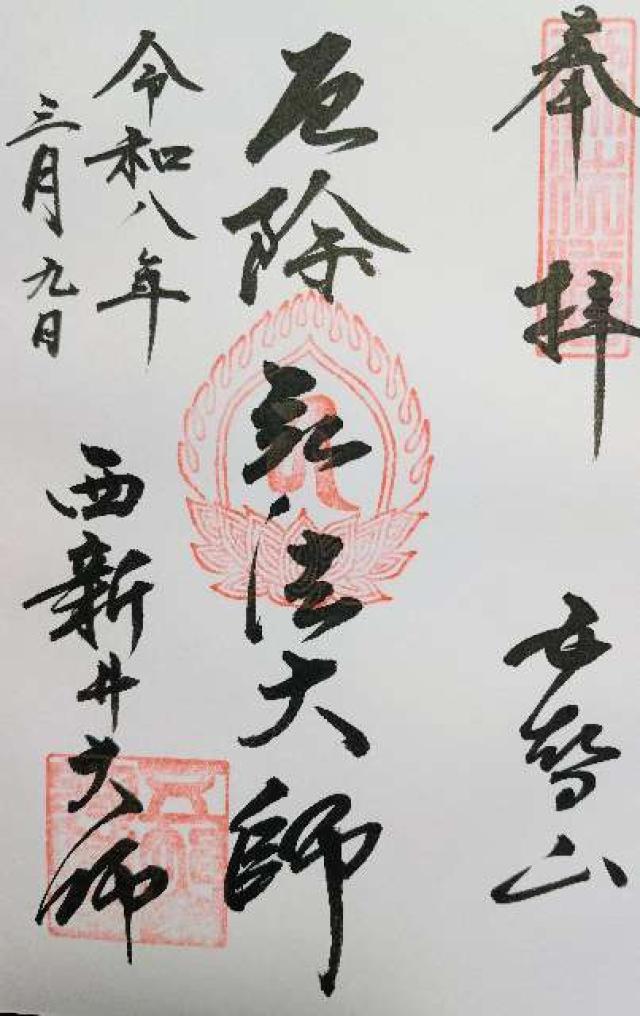 奉拝
五智山
厄除
弘法大師
令和八年
三月九日
西新井大師